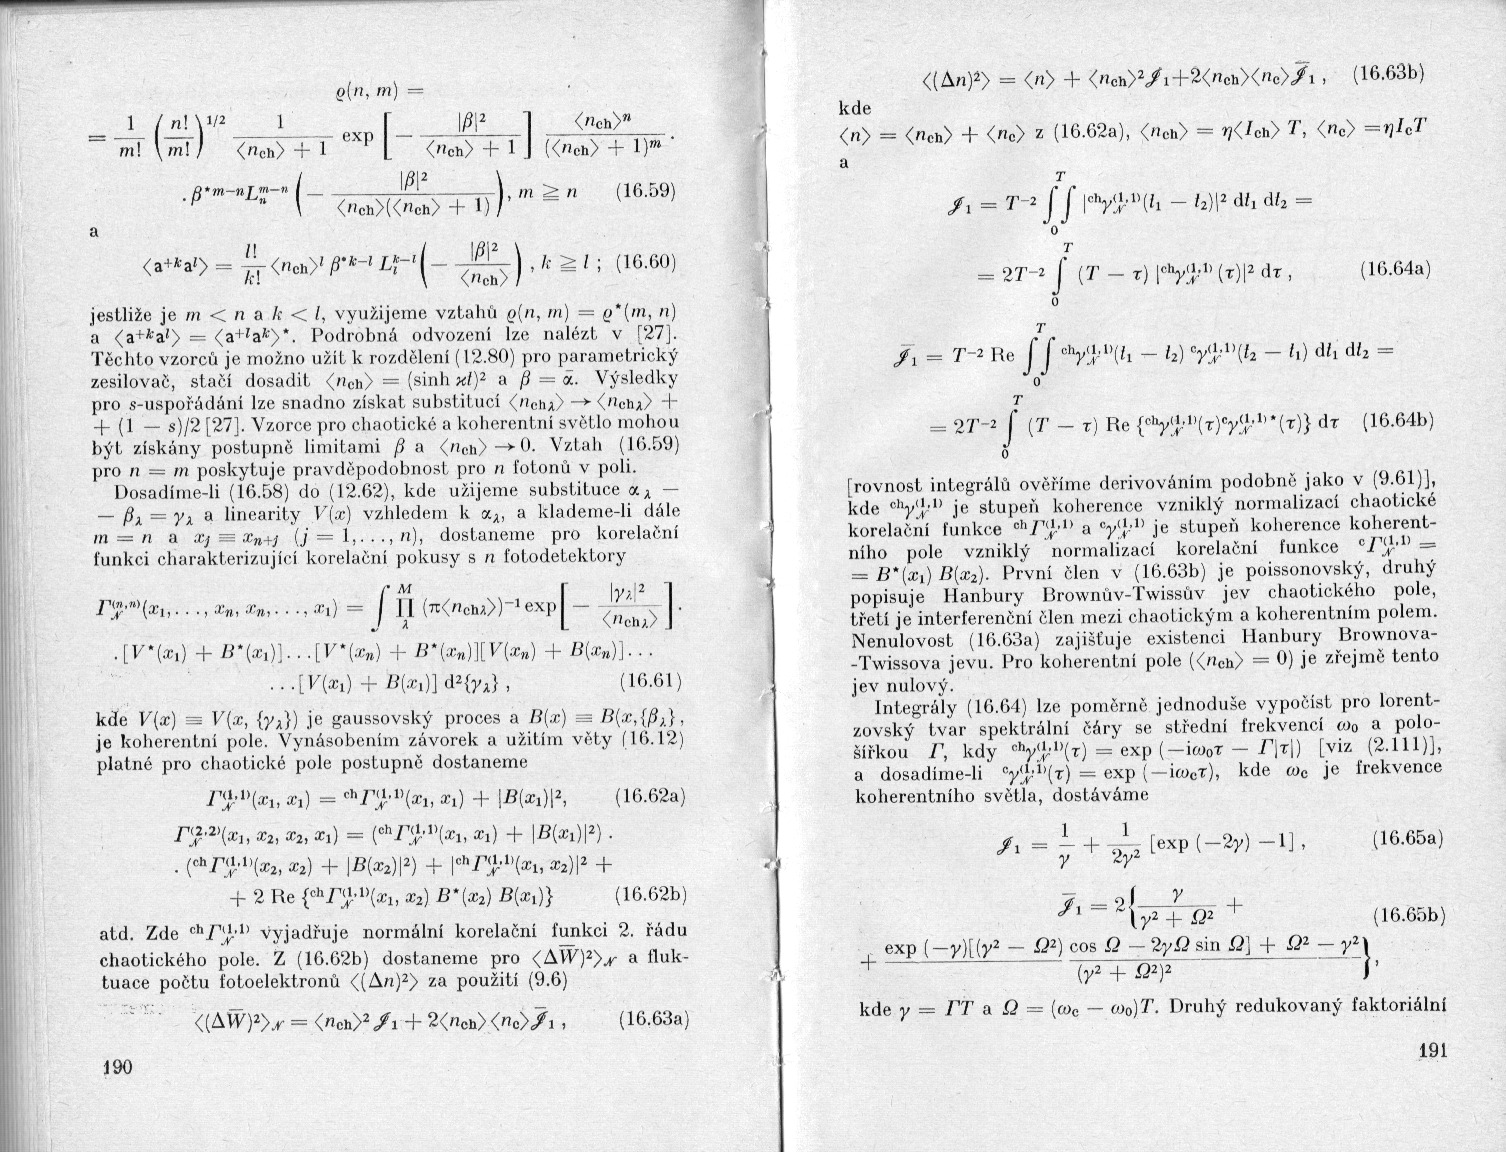 ϱ(n, m) =
= 1/m! (n!/m!)^{1/2} 1/(⟨n_ch⟩ + 1) exp [− |β|²/(⟨n_ch⟩ + 1)] ⟨n_ch⟩ⁿ/(⟨n_ch⟩ + 1)^m .
. β*^{m−n} L_n^{m−n} (− |β|²/(⟨n_ch⟩(⟨n_ch⟩ + 1))), m ≧ n (16.59)
a
⟨a^{+k}a^l⟩ = l!/k! ⟨n_ch⟩^l β*^{k−l} L_l^{k−l} (− |β|²/⟨n_ch⟩), k ≧ l ; (16.60)
jestliže je m < n a k < l, využijeme vztahů ϱ(n, m) = ϱ*(m, n)
a ⟨a^{+k}a^l⟩ = ⟨a^{+l}a^k⟩*. Podrobná odvození lze nalézt v [27].
Těchto vzorců je možno užít k rozdělení (12.80) pro parametrický
zesilovač, stačí dosadit ⟨n_ch⟩ = (sinh ϰt)² a β = ᾱ. Výsledky
pro s-uspořádání lze snadno získat substitucí ⟨n_chλ⟩ → ⟨n_chλ⟩ +
+ (1 — s)/2 [27]. Vzorce pro chaotické a koherentní světlo mohou
být získány postupně limitami β a ⟨n_ch⟩ → 0. Vztah (16.59)
pro n = m poskytuje pravděpodobnost pro n fotonů v poli.
Dosadíme-li (16.58) do (12.62), kde užijeme substituce α_λ —
— β_λ = γ_λ a linearity V(x) vzhledem k α_λ, a klademe-li dále
m = n a x_j ≡ x_{n+j} (j = 1,..., n), dostaneme pro korelační
funkci charakterizující korelační pokusy s n fotodetektory
Γ_𝒩^{(n,n)}(x₁,..., x_n, x_n,..., x₁) = ∫ ∏_λ^M (π⟨n_chλ⟩)⁻¹ exp [− |γ_λ|²/⟨n_chλ⟩] .
. [V*(x₁) + B*(x₁)]...[V*(x_n) + B*(x_n)][V(x_n) + B(x_n)]...
...[V(x₁) + B(x₁)] d²{γ_λ} , (16.61)
kde V(x) ≡ V(x, {γ_λ}) je gaussovský proces a B(x) ≡ B(x,{β_λ},
je koherentní pole. Vynásobením závorek a užitím věty (16.12)
platné pro chaotické pole postupně dostaneme
Γ_𝒩^{(1,1)}(x₁, x₁) = ^{ch}Γ_𝒩^{(1,1)}(x₁, x₁) + |B(x₁)|², (16.62a)
Γ_𝒩^{(2,2)}(x₁, x₂, x₂, x₁) = (^{ch}Γ_𝒩^{(1,1)}(x₁, x₁) + |B(x₁)|²) .
. (^{ch}Γ_𝒩^{(1,1)}(x₂, x₂) + |B(x₂)|²) + |^{ch}Γ_𝒩^{(1,1)}(x₁, x₂)|² +
+ 2 Re {^{ch}Γ_𝒩^{(1,1)}(x₁, x₂) B*(x₂) B(x₁)} (16.62b)
atd. Zde ^{ch}Γ_𝒩^{(1,1)} vyjadřuje normální korelační funkci 2. řádu
chaotického pole. Z (16.62b) dostaneme pro ⟨(ΔW̄)²⟩_𝒩 a fluk-
tuace počtu fotoelektronů ⟨(Δn)²⟩ za použití (9.6)
⟨(ΔW̄)²⟩_𝒩 = ⟨n_ch⟩² 𝒥₁ + 2⟨n_ch⟩⟨n_c⟩𝒥̄₁ , (16.63a)
190
⟨(Δn)²⟩ = ⟨n⟩ + ⟨n_ch⟩²𝒥₁+2⟨n_ch⟩⟨n_c⟩𝒥̄₁ , (16.63b)
kde
⟨n⟩ = ⟨n_ch⟩ + ⟨n_c⟩ z (16.62a), ⟨n_ch⟩ = η⟨I_ch⟩ T, ⟨n_c⟩ =ηI_cT
a
𝒥₁ = T⁻² ∫∫₀^T |^{ch}γ_𝒩^{(1,1)}(t₁ − t₂)|² dt₁ dt₂ =
= 2T⁻² ∫₀^T (T − τ) |^{ch}γ_𝒩^{(1,1)} (τ)|² dτ , (16.64a)
𝒥̄₁ = T⁻² Re ∫∫₀^T ^{ch}γ_𝒩^{(1,1)}(t₁ − t₂) ^cγ_𝒩^{(1,1)}(t₂ − t₁) dt₁ dt₂ =
= 2T⁻² ∫₀^T (T − τ) Re {^{ch}γ_𝒩^{(1,1)}(τ)^cγ_𝒩^{(1,1)}*(τ)} dτ (16.64b)
[rovnost integrálů ověříme derivováním podobně jako v (9.61)],
kde ^{ch}γ_𝒩^{(1,1)} je stupeň koherence vzniklý normalizací chaotické
korelační funkce ^{ch}Γ_𝒩^{(1,1)} a ^cγ_𝒩^{(1,1)} je stupeň koherence koherent-
ního pole vzniklý normalizací korelační funkce ^cΓ_𝒩^{(1,1)} =
= B*(x₁) B(x₂). První člen v (16.63b) je poissonovský, druhý
popisuje Hanbury Brownův-Twissův jev chaotického pole,
třetí je interferenční člen mezi chaotickým a koherentním polem.
Nenulovost (16.63a) zajišťuje existenci Hanbury Brownova-
-Twissova jevu. Pro koherentní pole (⟨n_ch⟩ = 0) je zřejmě tento
jev nulový.
Integrály (16.64) lze poměrně jednoduše vypočíst pro lorent-
zovský tvar spektrální čáry se střední frekvencí ω₀ a polo-
šířkou Γ, kdy ^{ch}γ_𝒩^{(1,1)}(τ) = exp (−iω₀τ − Γ|τ|) [viz (2.111)],
a dosadíme-li ^cγ_𝒩^{(1,1)}(τ) = exp (−iω_cτ), kde ω_c je frekvence
koherentního světla, dostáváme
𝒥₁ = 1/γ + 1/(2γ²) [exp (−2γ) −1] , (16.65a)
𝒥̄₁ = 2{γ/(γ² + Ω²) +
+ (exp (−γ)[(γ² − Ω²) cos Ω − 2γΩ sin Ω] + Ω² − γ²)/(γ² + Ω²)²}, (16.65b)
kde γ = ΓT a Ω = (ω_c — ω₀)T. Druhý redukovaný faktoriální
191